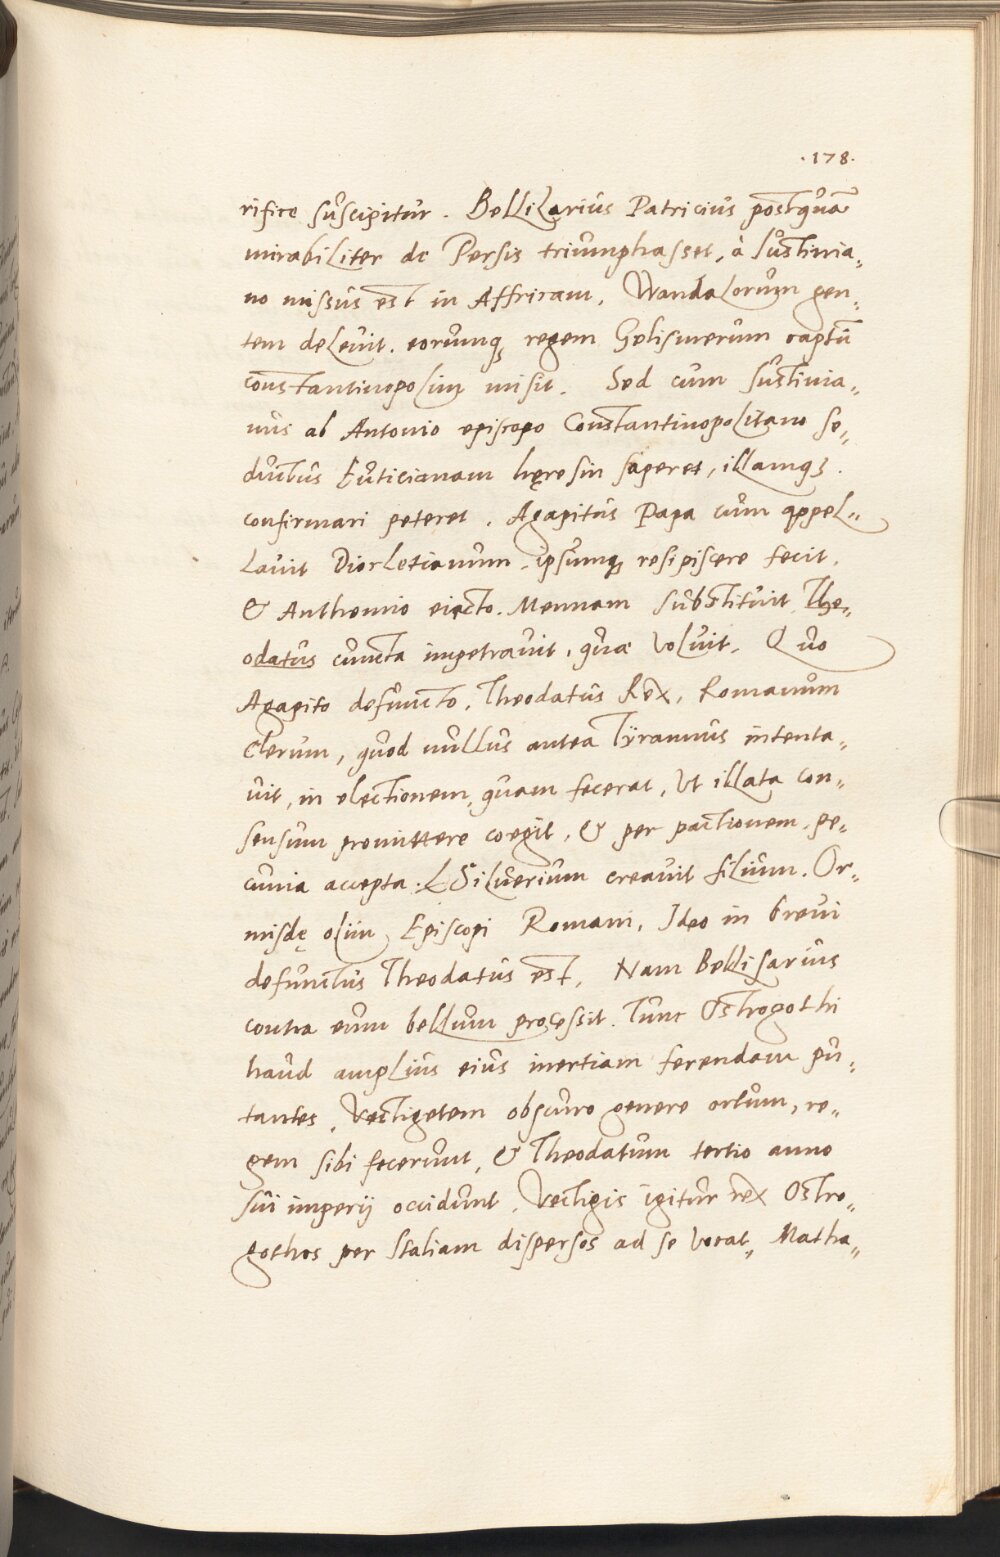 .178.
rifice suscipitur. Bellisarius Patricius postquã
mirabiliter de Persis triumphasset, à Iustinia„
no missus est in Affricam, Wandalorum gen„
tem delevit. eorumq3 regem Gelismerum captũ
constantinopolim misit. Sed cum Iustinia„
nus ab Antonio episcopo Constantinopolitano se„
ductus Euticianam hęresin saperet, illamq3.
confirmari peteret. Agapitus Papa cum appel„
lavit Diocletianum, ipsumq3 resipiscere fecit.
& Anthemio eiecto. Mennam substituit, The„
odatus cuncta impetravit, quæ voluit. Quo
Agapito defuncto, Theodatus Rex, Romanum
Clerum, quod nullus antea Tÿrannus intenta„
vit, in electionem, quam fecerat, ut illata con„
sensum promittere coegit, & per pactionem, pe„
cunia accepta. Silverium creavit filium. Or„
misdę olim Episcopi Romani, Ideo in brevi
defunctus Theodatus est, Nam Bellisarius
contra eum bellum processit. Tunc Ostrogothi
haud amplius eius inertiam ferendam pu„
tantes, Vectigetem obscuro genere ortum, re„
gem sibi fecerunt, & Theodatum tertio anno
sui imperij occidunt. Vectigis igitur rex Ostro„
gothos per Italiam dispersos ad se vocat, Matha„